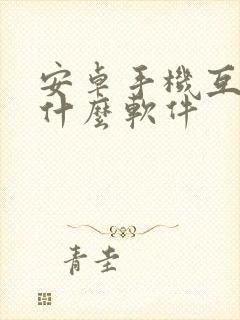 安卓手機互
什麼軟件
青圭